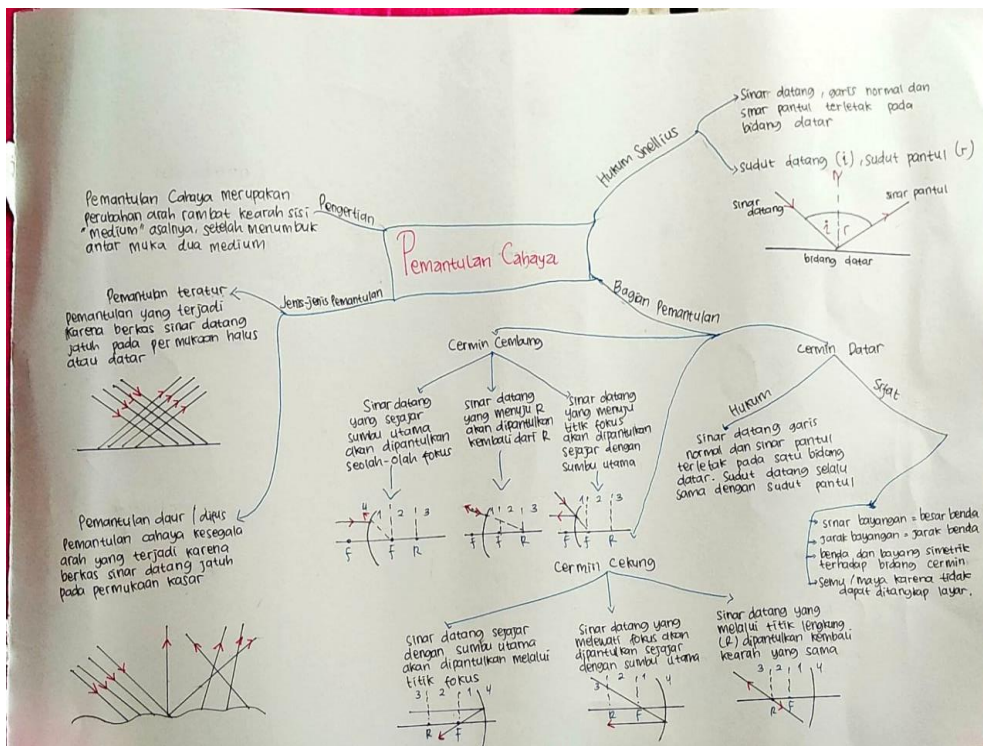 Pemantulan Cahaya
Pengertian
Pemantulan Cahaya merupakan
perubahan arah rambat kearah sisi
"medium" asalnya, setelah menumbuk
antar muka dua medium
Jenis-jenis Pemantulan
Pemantulan teratur
Pemantulan yang terjadi
karena berkas sinar datang
jatuh pada permukaan halus
atau datar
Pemantulan daur / difus
Pemantulan cahaya kesegala
arah yang terjadi karena
berkas sinar datang jatuh
pada permukaan kasar
Hukum Snellius
Sinar datang, garis normal dan
sinar pantul terletak pada
bidang datar
sudut datang (i), sudut pantul (r)
N
sinar
datang
sinar pantul
i r
bidang datar
Bagian Pemantulan
Cermin Cembung
Sinar datang
yang sejajar
sumbu utama
akan dipantulkan
seolah-olah fokus
4 1 2 3
F F R
sinar datang
yang menuju R
akan dipantulkan
kembali dari R
1 2 3
F F R
sinar datang
yang menuju
titik fokus
akan dipantulkan
sejajar dengan
sumbu utama
1 2 3
F F R
Cermin Datar
Hukum
sinar datang garis
normal dan sinar pantul
terletak pada satu bidang
datar. Sudut datang selalu
sama dengan sudut pantul
Sifat
sinar bayangan = besar benda
jarak bayangan = jarak benda
benda dan bayang simetrik
terhadap bidang cermin
Semu / maya karena tidak
dapat ditangkap layar.
Cermin Cekung
Sinar datang sejajar
dengan sumbu utama
akan dipantulkan melalui
titik fokus
3 2 1 4
R F
Sinar datang yang
melewati fokus akan
dipantulkan sejajar
dengan sumbu utama
3 2 1 4
R F
Sinar datang yang
melalui titik lengkung
(R) dipantulkan kembali
kearah yang sama
3 2 1 4
R F